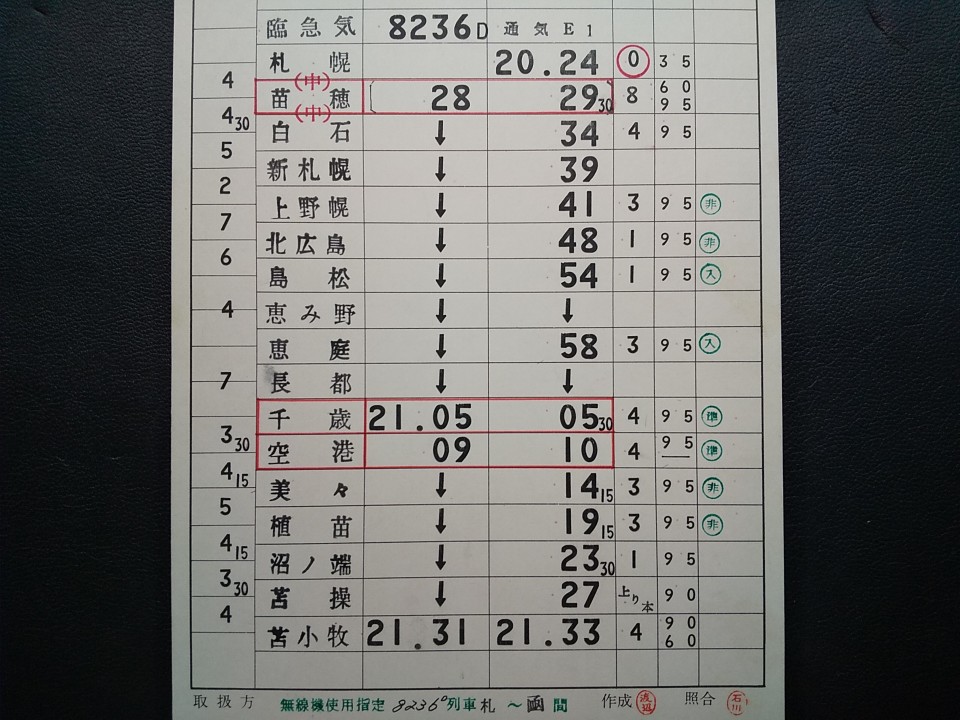 臨急気 8236D 通気E1
札幌 20.24 0 35
4
(中)
苗穂 28 29 30 8 60 95
(中)
4 30
白石 ↓ 34 4 95
5
新札幌 ↓ 39
2
上野幌 ↓ 41 3 95 非
7
北広島 ↓ 48 1 95 非
6
島松 ↓ 54 1 95 入
恵み野 ↓ ↓
4
恵庭 ↓ 58 3 95 入
長都 ↓ ↓
7
千歳 21.05 05 30 4 95 準
3 30
空港 09 10 4 95 準
4 15
美々 ↓ 14 15 3 95 非
5
植苗 ↓ 19 15 3 95 非
4 15
沼ノ端 ↓ 23 30 1 95
3 30
苫操 ↓ 27 上り本 90
4
苫小牧 21.31 21.33 4 90 60
取扱方 無線機使用指定 8236D列車札~函間 作成 渡辺 照合 石川